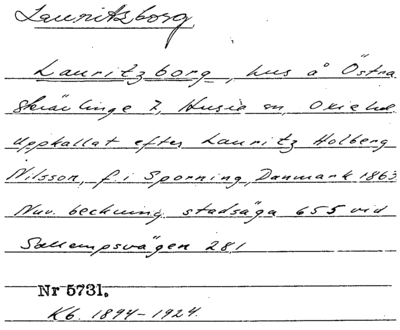 Lauritzborg,
Lauritzborg, hus å Östra
Skrävlinge 7, Husie sn, Oxie hd.
Uppkallat efter Lauritz Holberg
Nilsson, f. i Sporning, Danmark 1863
Nuv. beckning stadsäga 655 vid
Sallerupsvägen 281
Nr 5731.
Kb. 1894-1924.